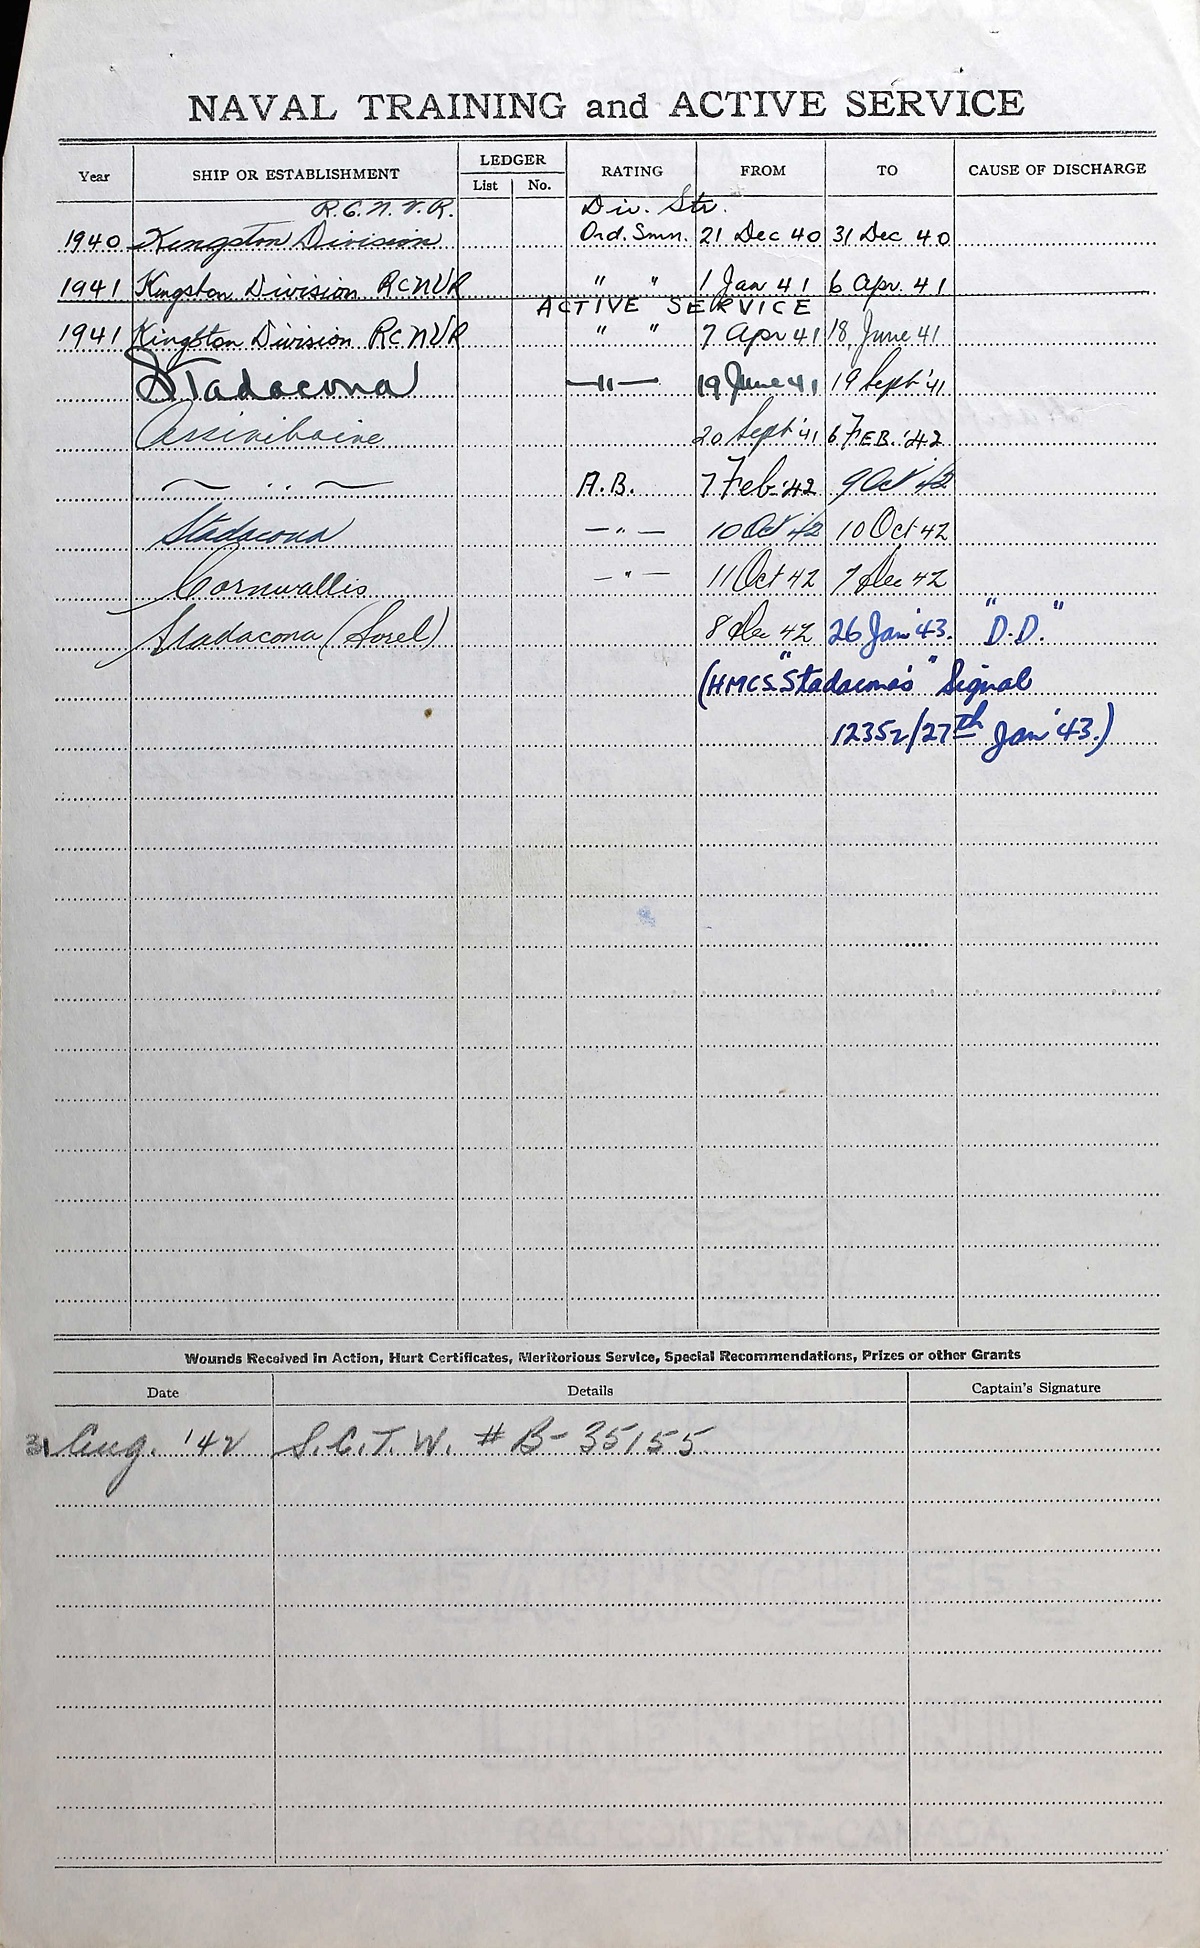 NAVAL TRAINING and ACTIVE SERVICE
Year SHIP OR ESTABLISHMENT LEDGER List No. RATING FROM TO CAUSE OF DISCHARGE
R.C.N.V.R. Div. Str.
1940 Kingston Division Ord. Smn. 21 Dec 40 31 Dec 40
1941 Kingston Division RCNVR " " 1 Jan 41 6 Apr. 41
ACTIVE SERVICE
1941 Kingston Division RCNVR " " 7 Apr 41 18 June 41
Stadacona —"— 19 June 41 19 Sept '41
Assiniboine 20 Sept '41 6 FEB. '42
— " — A.B. 7 Feb. '42 9 Oct '42
Stadacona — " — 10 Oct '42 10 Oct 42
Cornwallis — " — 11 Oct 42 7 Dec 42
Stadacona (Sorel) 8 Dec 42 26 Jan '43. "D.D."
(HMCS "Stadacona's" Signal
1235z/27th Jan '43.)
Wounds Received in Action, Hurt Certificates, Meritorious Service, Special Recommendations, Prizes or other Grants
Date Details Captain's Signature
31 Aug. '42 S.C.T.W. # B-35155
EARNSCLIFFE
LINEN BOND
RAG CONTENT-CANADA